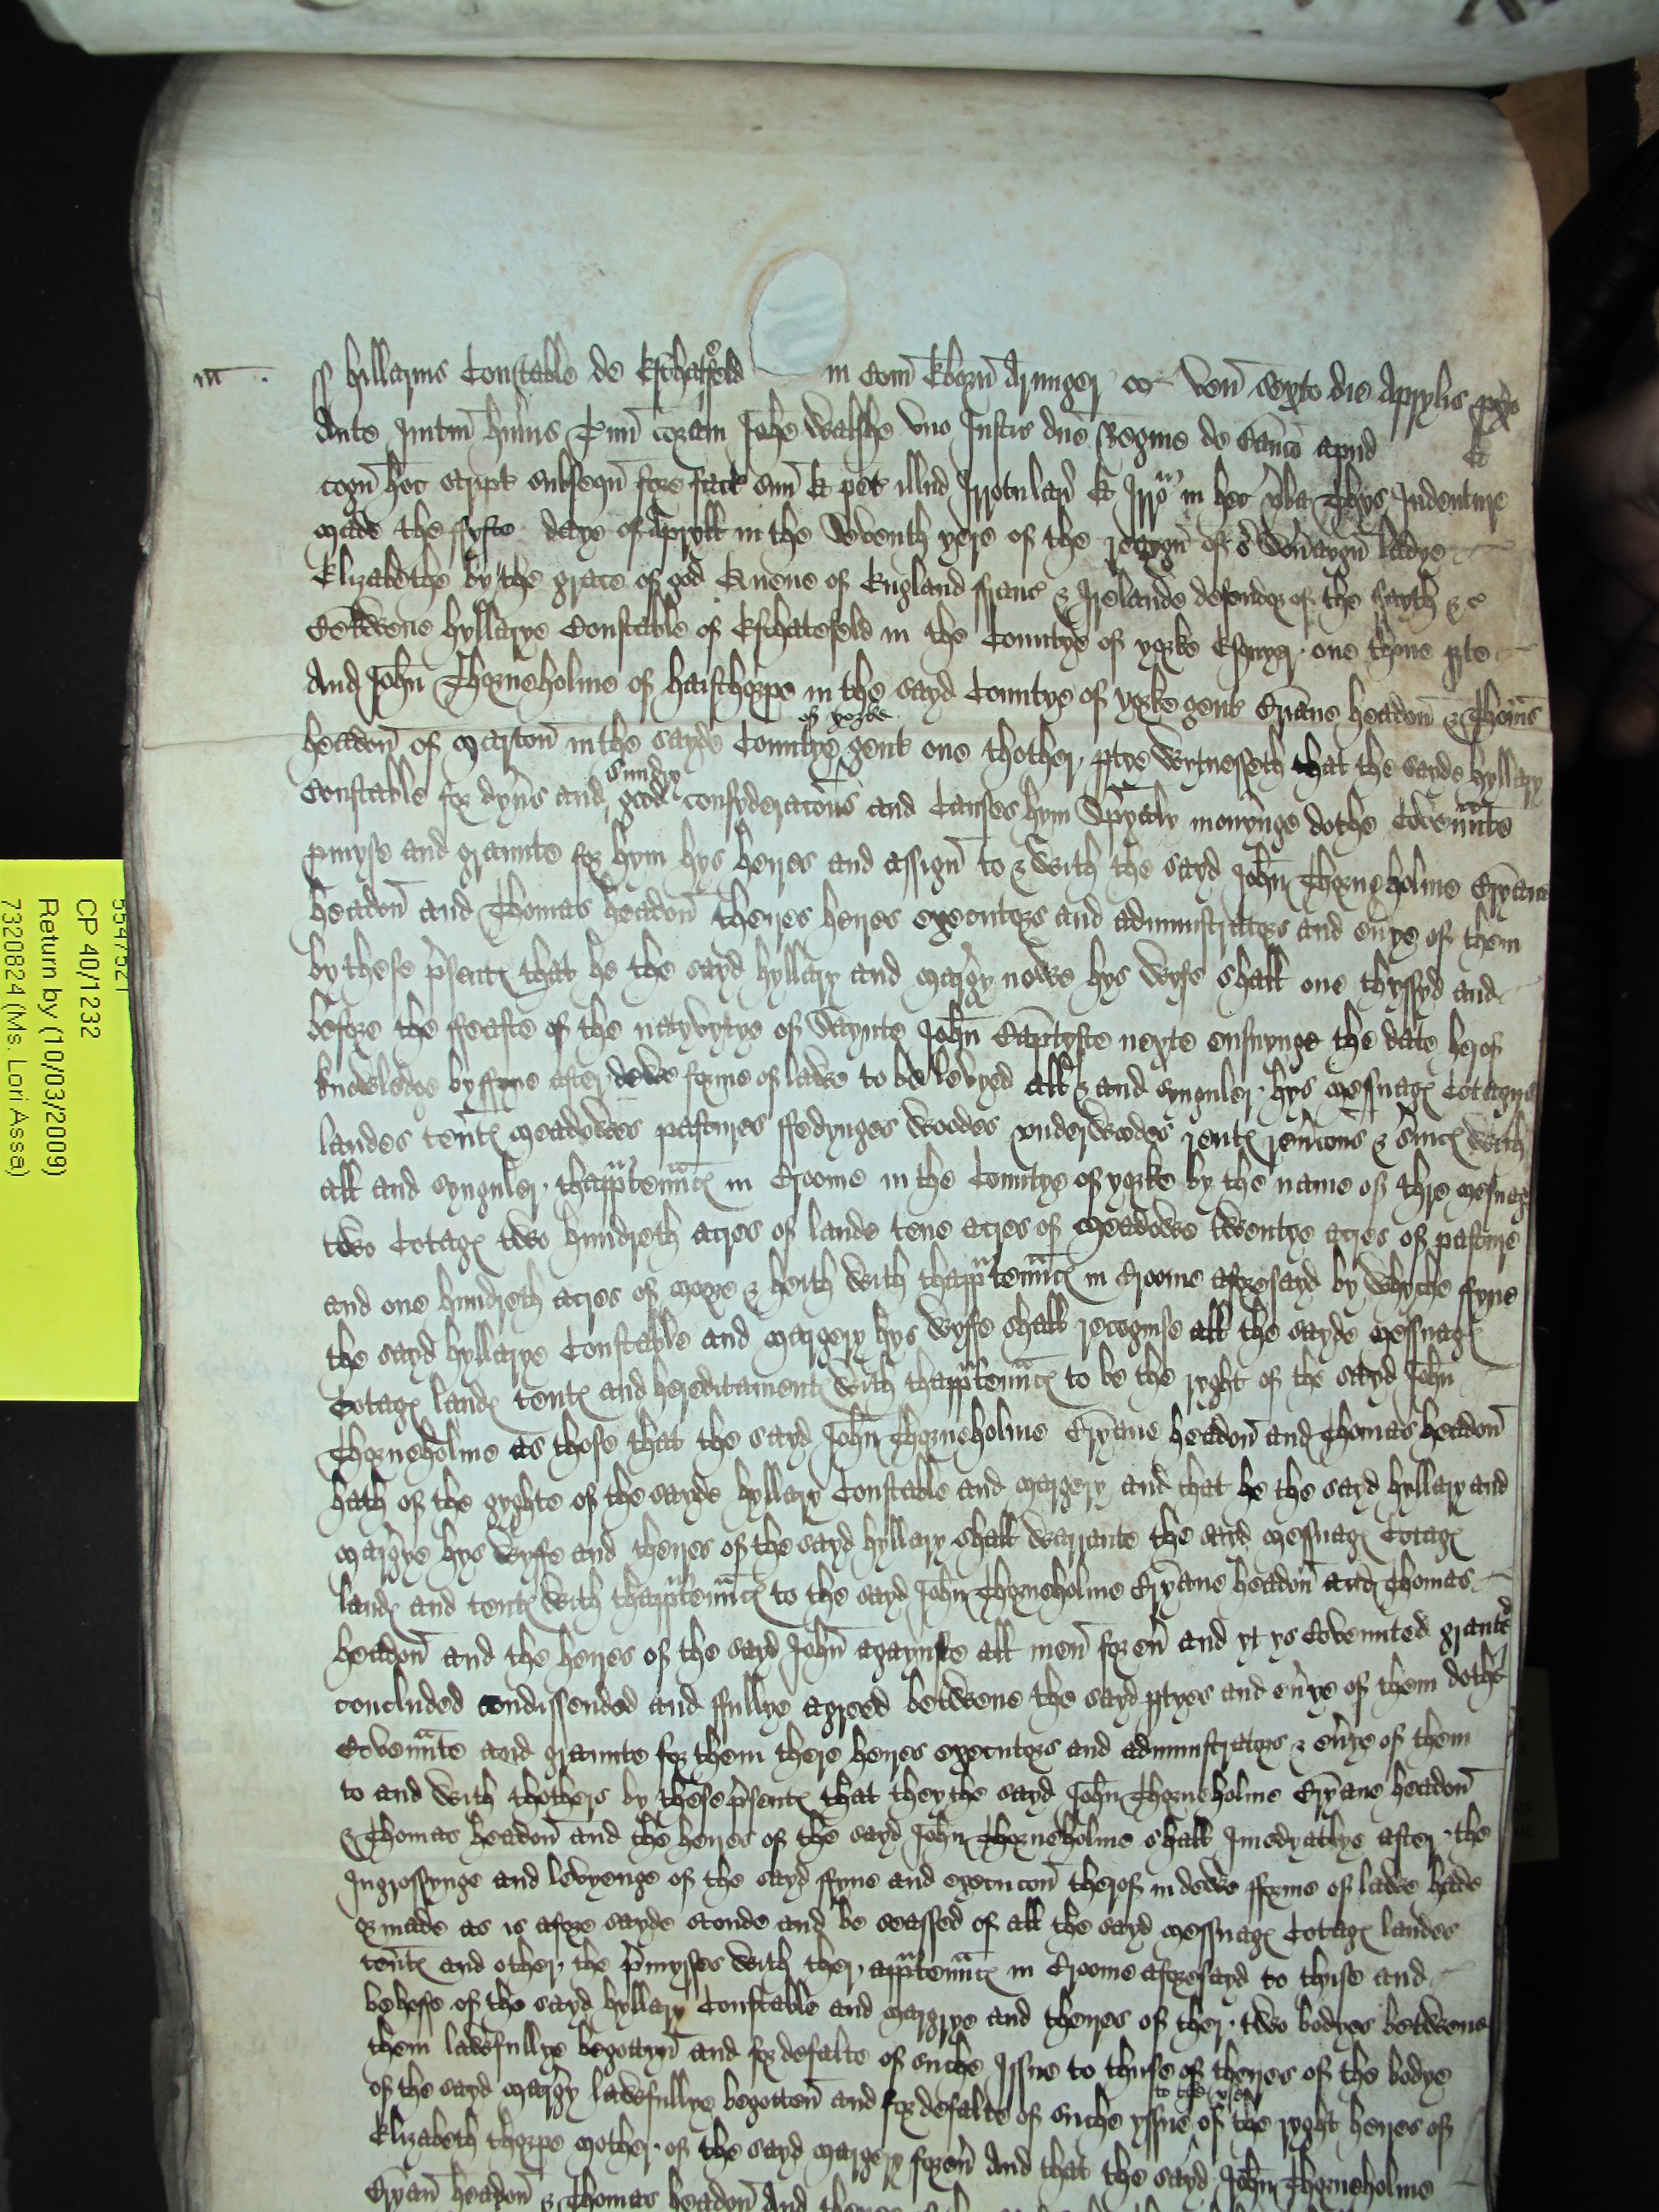 m̃
ss hillarius Constable de Eschatfeld in Com̃ Eboru͂ Armiger &c ven̄ Sexto die Aprylis
Ante initm̄ huius T̄mi coram Johe Walshe uno Justic dn̄e Regine de Banco apud Et
cogn̄ hoc script subsequn̄ fore fact̄ suu͂ Et pet illud Irrotulari Et Irro in hec v̄ba Thys Indenture
made the ffyfte daye of Apryll in the Seventh yere of the reaygn̄ of o Sov̄aygn̄ ladye
Elizabethe by the grace of god Quene of England ffranc & Irelande defendor of the fayth &c
Betwene hyllarye Constable of Eschatefeld in the Countye of yorke Esquyer one thone p̱te
And John̄ Thorneholme of haisthorpe in the sayd Countye of yorke gent Bryane headon̄ & Thom̄s
headon̄ of Marton̄ in the sayde Countye of yorke gent one thother ptye wytnesseth that the sayde hyllary
Constable for dyv̄s and sundry good consyderacōns and Causes hym Sp̄yaly movynge dothe Coven̄nte
p̱myse and graunte for hym hys heyres and assign̄ to & with the sayd John̄ Thorneholme Bryane
headon̄ and Thomas headon̄ theyres heyres executors and administrators and ev̄ye of them
by these p̄sentꝭ that he the sayd hyllary and marḡy nowe hys wyfe shall one thyssyd and
before the ffeaste of the natyvytye of Saynte John̄ Baptyste nexte ensuynge the date herof
knowledge by ffyne after dewe forme of lawe to be levyed all & and synguler hys messuagꝭ Cotagꝭ
landes ten̄tꝭ meadowes pastures ffedynges Woodes underwoodes rentꝭ rev̄cons & s̄vicꝭ with
all and synguler thapp̱ten̄ncꝭ in Croome in the Countye of yorke by the name of thre mesuagꝭ
two Cotagꝭ two hundreth acres of lande tene acres of Meadowe twentye acres of pasture
and one hundreth acres of more & heith with thapp̱ten̄ncꝭ in Croome aforesayd by whyche ffyne
the sayd hyllarye Constable and margery hys wyffe shall recognise all the sayde messuagꝭ
Cotagꝭ landꝭ tentꝭ and hereditamentꝭ with thapp̱ten̄ncꝭ to be the ryght of the sayd John̄
Thorneholme as those that the sayd John̄ Thorneholme Bryane headon̄ and Thomas headon̄
hath of the gyghte of the sayde hyllary Constable and margery and that he the sayd hyllary and
marḡye hys wyffe and theyres of the sayd hyllary shall warrante the sayd messuagꝭ Cotagꝭ
landꝭ and tentꝭ with thapp̱ten̄ncꝭ to the sayd John̄ Thorneholme Bryane headon̄ and Thomas
headon̄ and the heyres of the sayd John̄ agaynste all men̄ for ev̄ and yt ys Covennted granted
concluded condissended and ffullye agreed betwene the sayd p̱tyes and ev̄ye of them dothe
Coven̄nte and graunte for them there heyres executors and administrators & ev̄ye of them
to and with thothers by these p̄sentꝭ that they the sayd John̄ Thorneholme Bryane headon̄
& Thomas headon̄ and the heyres of the sayd John̄ Thorneholme shall Imedyatlye after the
Ingrossynge and levyenge of the sayd ffyne and execucon̄ therof in dewe fforme of lawe hade
or made as is afore sayde stonde and be seassed of all the sayd messuagꝭ Cotagꝭ landes
ten̄tꝭ and other the p̄mysses with ther app̱ten̄ncꝭ in Croome aforesayd to thuse and
beheffe of the sayd hyllary Constable and margrye and theyres of ther two bodyes betwene
them lawfullye begottyn̄ and for defalte of suche Issue to thuse of theyres of the bodye
of the sayd marḡy lawfullye begotten̄ and for defalte of suche yssue to the use of the ryght heyres of
Elizabeth thorpe mother of the sayd margery forev̄ And that the sayd John̄ Thorneholme
Bryan̄ headon̄ & Thomas headon̄ And theyres of
5547521
CP 40/1232
Return by (10/03/2009)
7320824 (Ms. Lori Asse)